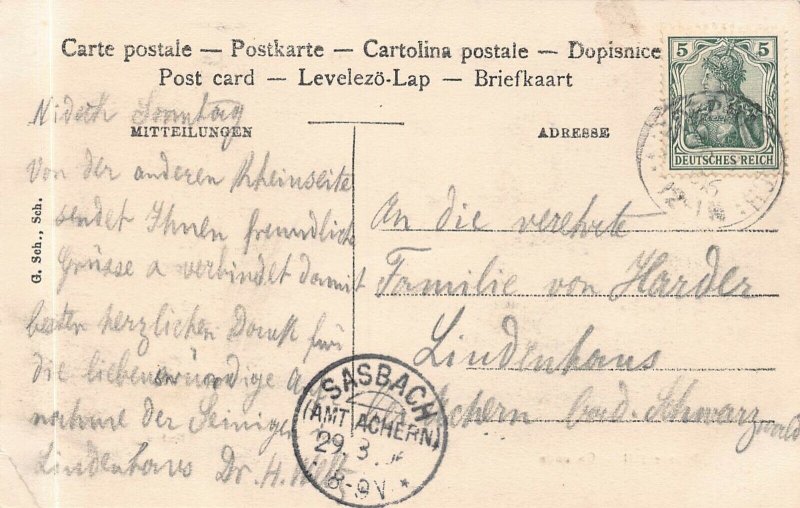 Carte postale — Postkarte — Cartolina postale — Dopisnice
Post card — Levelező-Lap — Briefkaart
5 5
DEUTSCHES REICH
MITTEILUNGEN
ADRESSE
G. Sch., Sch.
Nideck Sonntag
Von der anderen Rheinseite
sendet Ihnen freundliche
Grüsse a verbindet damit
besten herzlichen Dank für
die liebenswürdige Auf
nahme der Seinigen
Lindenhaus Dr. H.
An die verehrte
Familie von Harder
Lindenhaus
Achern Bad. Schwarzwald
SASBACH
(AMT ACHERN)
29. 3
8-9V. *